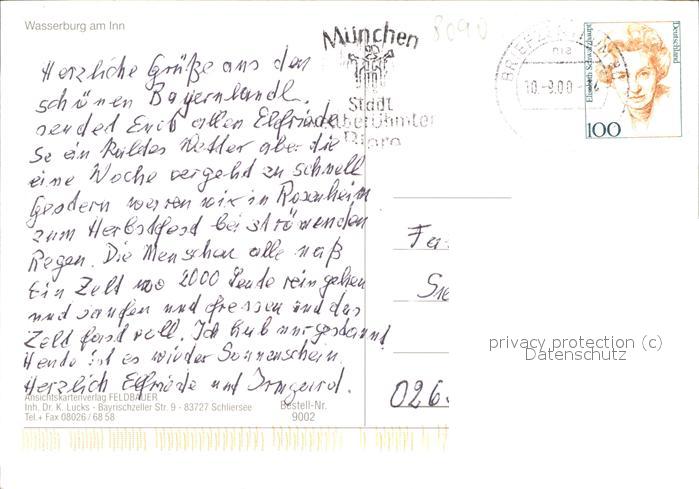 Wasserburg am Inn
8090
München
Stadt
BRIEFZENTRUM
10.-9.00-
Elisabeth Schwarzhaupt
Deutschland
100
Herzliche Grüße aus den
schönen Bayernlandl.
sendet Euch allen Elfriede
So ein kaldes Wetter aber die
eine Woche vergeht zu schnell
Gestern waren wir in Rosenheim
zum Herbstfest bei strömenden
Regen. Die Menschen alle naß
Ein Zelt wo 2000 Leute rein gehen
und saufen und fressen und das
Zelt fast voll. Ich hab nur gestaunt
Heute ist es wieder Sonnenschein.
Herzlich Elfriede und Irmgard.
Fa
026
privacy protection (c)
Datenschutz
Ansichtskartenverlag FELDBAUER
Inh. Dr. K. Lucks - Bayrischzeller Str. 9 - 83727 Schliersee
Tel.+ Fax 08026 / 68 58
Bestell-Nr.
9002